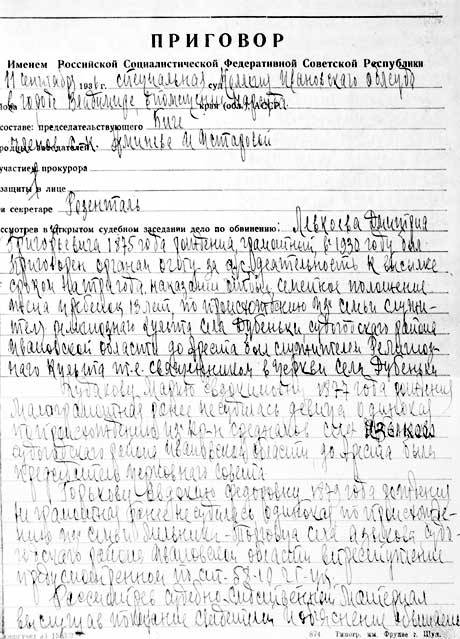 ПРИГОВОР
Именем Российской Социалистической Федеративной Советской Республики
11 сентября 1936 г. специальная суд. Коллегия Ивановского облсуда
в городе Владимире, в помещении нарсуда края (обл.) (АССР)
составе: председательствующего Биге
родных заседателей и
участием прокурора
защиты в лице
и секретаре Розенталь
ассмотрев в открытом судебном заседании дело по обвинению: Левкоева Дмитрия
Григорьевича 1875 года рождения, грамотной в 1930 году был
приговорен органам ОГПУ за а/с деятельность к высылке
сроком на три года наказание отбыл, семейное положение
жена и ребенок 13 лет, по происхождению из семьи служи-
теля религиозного культа села Дубеньки судогоского района
Ивановской области до ареста был служителем религиоз-
ного культа т-е священником в церкви села Дубеньки
Марию Евдокимовну 1877 года рождения
малограмотная ранее не судилась девица одинокая
по происхождению из кр-н середняков села Языково
судогоского района Ивановской области до ареста была
председатель церковного совета
Горькову Евдокию Федоровну 1879 года рождения
не грамотная ранее не судилась одинокая по происхожде-
нию из семьи села Языкова судо-
гоского района Ивановской области в преступление
предусмотренном по ст. 58-10 2 ч. УК.
Рассмотрев судебно-следственный материал
выслушав показание свидетелей и объяснение
874 Типогр. им. Фрунзе г. Шуя.